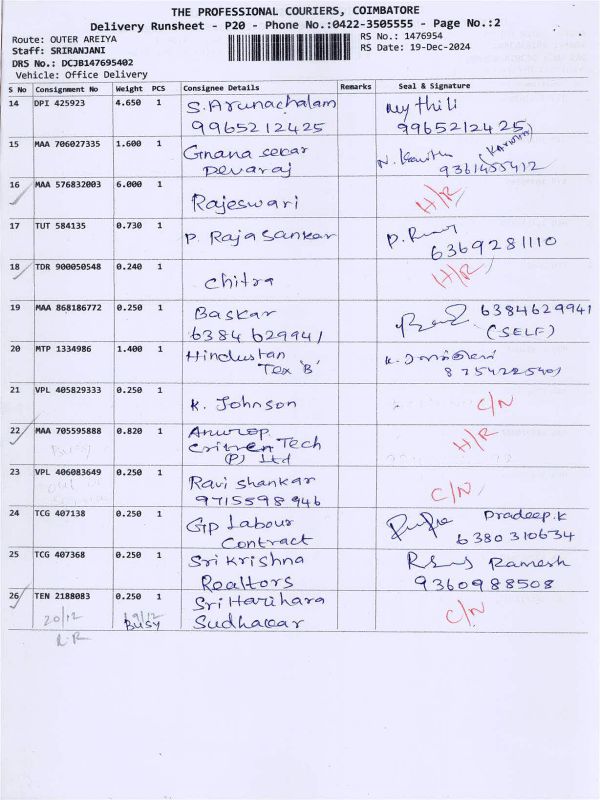 THE PROFESSIONAL COURIERS, COIMBATORE
Delivery Runsheet - P20 - Phone No.:0422-3505555 - Page No.:2
Route: OUTER AREIYA
RS No.: 1476954
Staff: SRIRANJANI
RS Date: 19-Dec-2024
DRS No.: DCJB147695402
Vehicle: Office Delivery
S No Consignment No Weight PCS Consignee Details Remarks Seal & Signature
14 DPI 425923 4.650 1 S. Arunachalam mythili
9965212425 9965212425
15 MAA 706027335 1.600 1 Gnana sekar
Devaraj 9361455412
16 MAA 576832003 6.000 1 Rajeswari H/R
17 TUT 584135 0.730 1 P. Raja Sankar
6369281110
18 TDR 900050548 0.240 1 chitra H/R
19 MAA 868186772 0.250 1 Baskar 6384629941
6384629941 (SELF)
20 MTP 1334986 1.400 1 Hindustan
Tex 'B' 8754225401
21 VPL 405829333 0.250 1 K. Johnson C/N
22 MAA 705595888 0.820 1 Tech H/R
(P) Ltd
Busy
23 VPL 406083649 0.250 1 Ravi shankar C/N
9715598946
24 TCG 407138 0.250 1 Gp Labour Pradeep.K
Contract 6380310634
25 TCG 407368 0.250 1 Sri Krishna Ramesh
Realtors 9360988508
26 TEN 2188083 0.250 1 Sri Harihara C/N
20/12 19/12 Busy Sudhakar
R.R